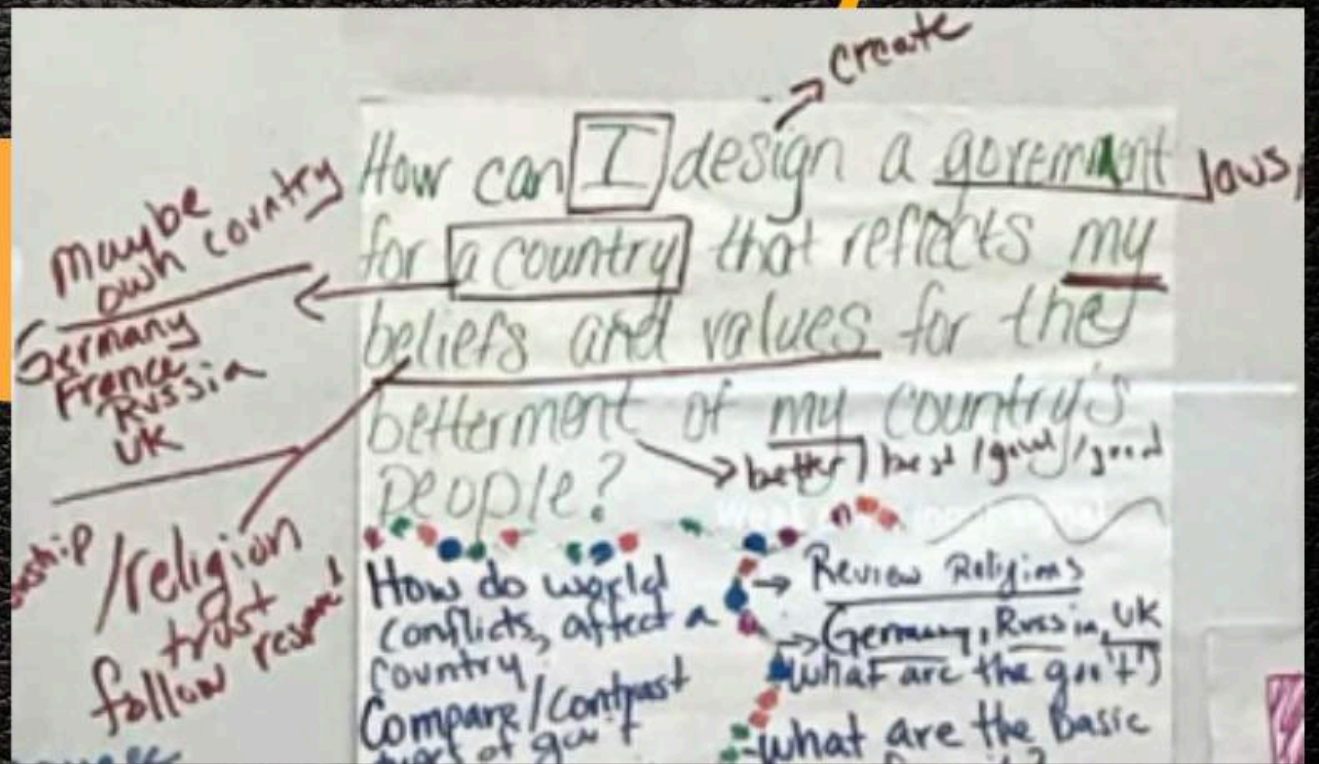 create
How can I design a goverment laws,
for a country that reflects my
beliefs and values for the
betterment of my country's
better / best / good
people?
maybe
own country
Germany
France
Russia
UK
/religion
trust
follow
How do world
conflicts, affect a
country
Compare/contrast
types of gov't
→ Review Religions
→ Germany, Russia, UK
what are the gov't's
-what are the Basic